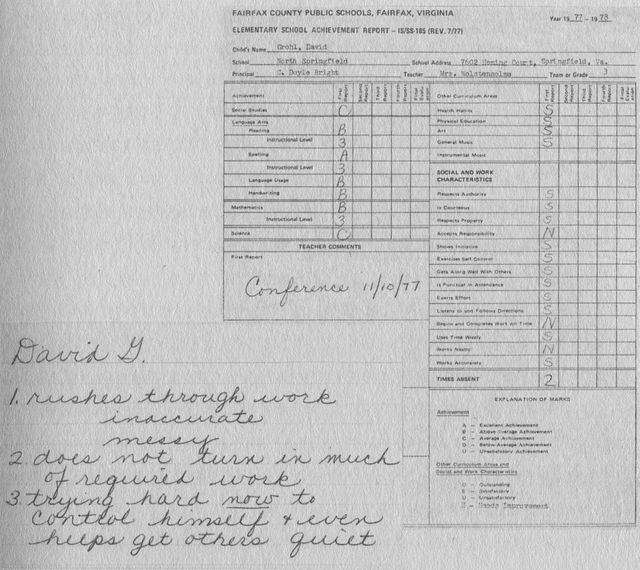 FAIRFAX COUNTY PUBLIC SCHOOLS, FAIRFAX, VIRGINIA
Year 1977 - 1978
ELEMENTARY SCHOOL ACHIEVEMENT REPORT - IS/SS-185 (REV. 7/77)
Child's Name Grohl, David
School North Springfield School Address 7602 Heming Court, Springfield, Va.
Principal C. Doyle Bright Teacher Mrs. Wolstenholme Team or Grade 3
Achievement First Report Second Report Third Report Fourth Report
Social Studies C
Language Arts
Reading B
Instructional Level 3
Spelling A
Instructional Level 3
Language Usage B
Handwriting B
Mathematics B
Instructional Level 3
Science C
TEACHER COMMENTS
First Report
Conference 11/10/77
Other Curriculum Areas First Report Second Report Third Report Fourth Report
Health Habits S
Physical Education S
Art S
General Music S
Instrumental Music
SOCIAL AND WORK
CHARACTERISTICS
Respects Authority S
Is Courteous S
Respects Property S
Accepts Responsibility N
Shows Initiative S
Exercises Self Control S
Gets Along Well With Others S
Is Punctual in Attendance S
Exerts Effort S
Listens to and Follows Directions S
Begins and Completes Work on Time N
Uses Time Wisely S
Works Neatly N
Works Accurately S
TIMES ABSENT 2
EXPLANATION OF MARKS
Achievement
A - Excellent Achievement
B - Above Average Achievement
C - Average Achievement
D - Below Average Achievement
U - Unsatisfactory Achievement
Other Curriculum Areas and
Social and Work Characteristics
O - Outstanding
S - Satisfactory
U - Unsatisfactory
N - Needs Improvement
David G.
1. rushes through work
inaccurate
messy
2. does not turn in much
of required work
3. trying hard now to
control himself & even
helps get others quiet